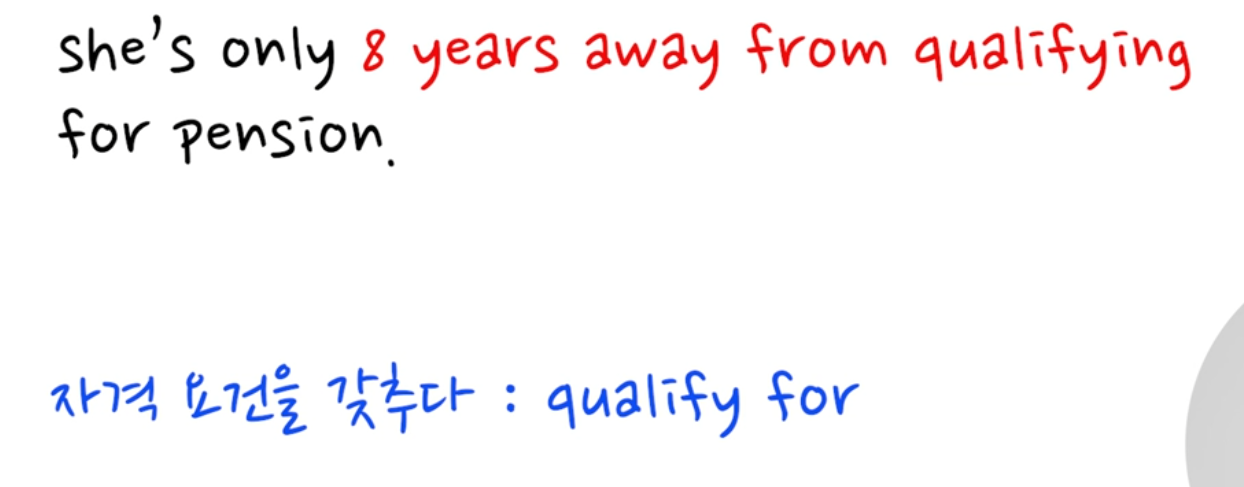 she's only 8 years away from qualifying
for pension.
자격 요건을 갖추다 : qualify for